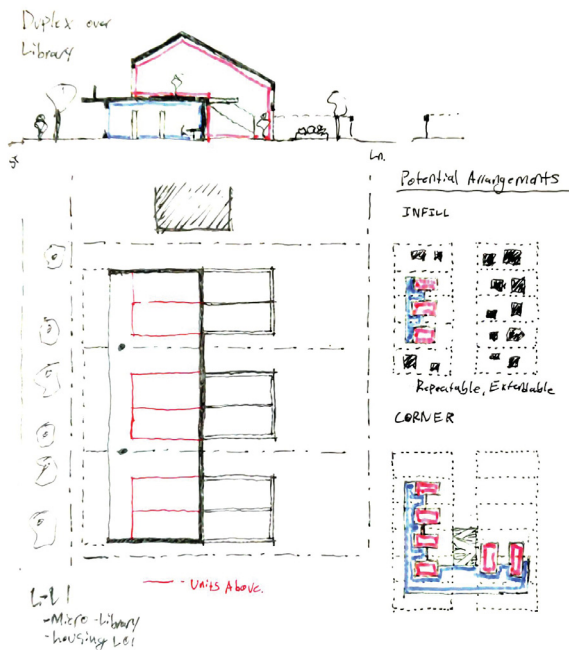 Duplex over
Library
St
Ln.
Potential Arrangements
INFILL
Repeatable, Extendable
CORNER
Units Above.
L-L1
-Micro-Library
-housing L01